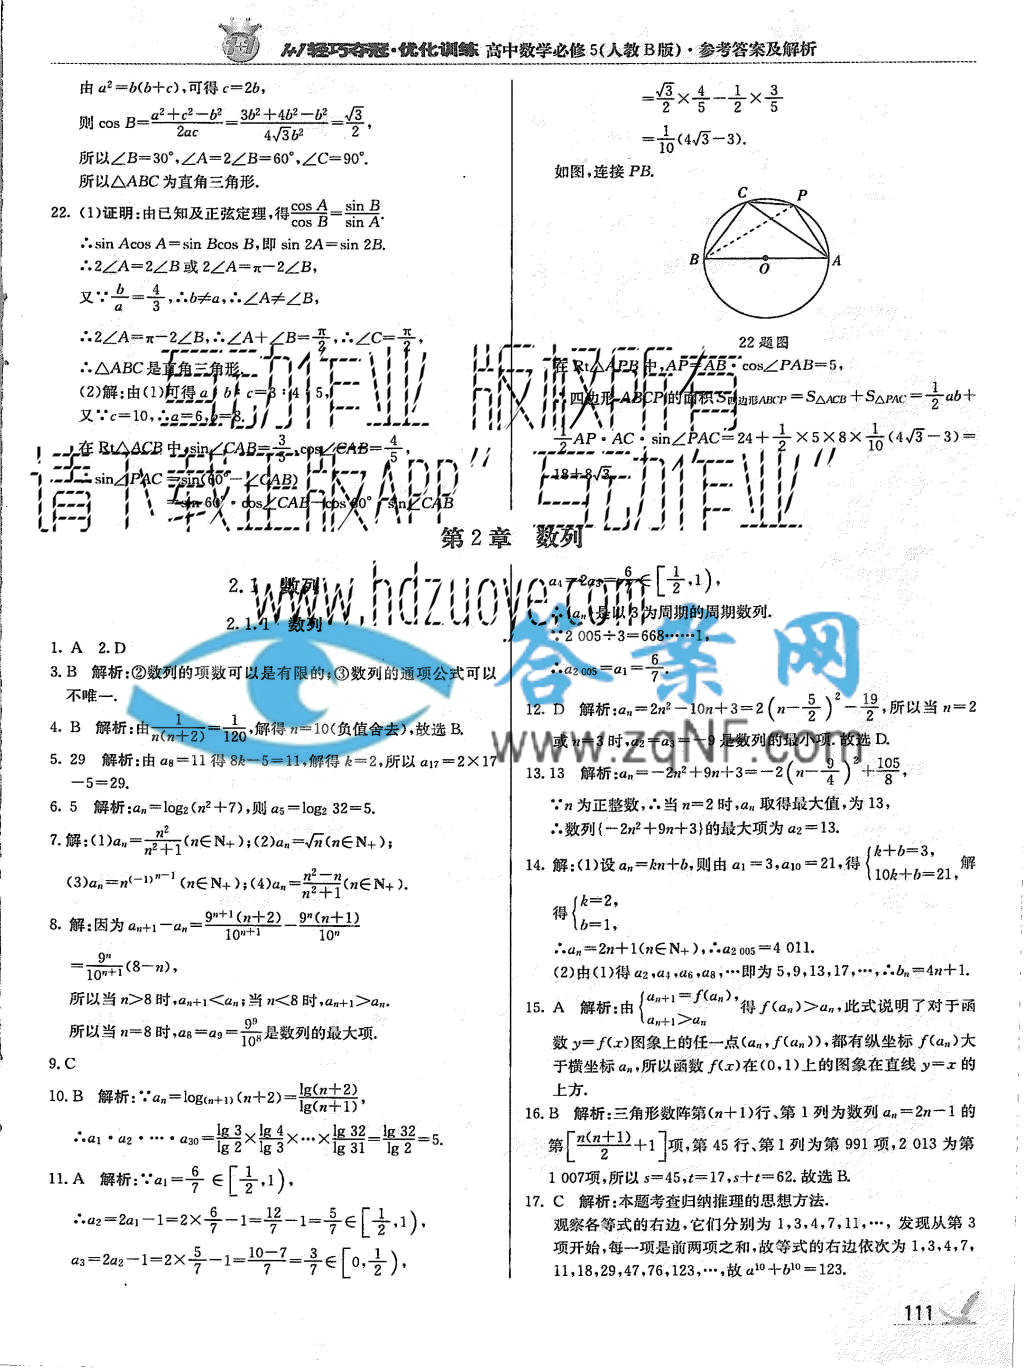 1+1轻巧夺冠·优化训练 高中数学必修5(人教B版)·参考答案及解析
由a²=b(b+c),可得c=2b,
则cos B=(a²+c²-b²)/2ac=(3b²+4b²-b²)/4√3b²=√3/2,
所以∠B=30°,∠A=2∠B=60°,∠C=90°.
所以△ABC为直角三角形.
22. (1)证明:由已知及正弦定理,得cos A/cos B=sin B/sin A.
∴sin Acos A=sin Bcos B,即sin 2A=sin 2B.
∴2∠A=2∠B或2∠A=π-2∠B,
又∵b/a=4/3,∴b≠a,∴∠A≠∠B,
∴2∠A=π-2∠B,∴∠A+∠B=π/2,∴∠C=π/2,
∴△ABC是直角三角形.
(2)解:由(1)可得a:b:c=3:4:5,
又∵c=10,∴a=6,b=8.
在Rt△ACB中,sin∠CAB=3/5,cos∠CAB=4/5,
sin∠PAC=sin(60°-∠CAB)
=sin 60°·cos∠CAB-cos 60°·sin∠CAB
=√3/2×4/5-1/2×3/5
=1/10(4√3-3).
如图,连接PB.
C P
B O A
22题图
在Rt△APB中,AP=AB·cos∠PAB=5,
四边形ABCP的面积S四边形ABCP=S△ACB+S△PAC=1/2ab+
1/2AP·AC·sin∠PAC=24+1/2×5×8×1/10(4√3-3)=
18+8√3.
互动作业 版权所有
请下载正版APP“互动作业”
www.hdzuoye.com
第2章 数列
2.1 数列
2.1.1 数列
1. A 2. D
3. B 解析:②数列的项数可以是有限的;③数列的通项公式可以
不唯一.
4. B 解析:由1/n(n+2)=1/120,解得n=10(负值舍去),故选B.
5. 29 解析:由a₈=11得8k-5=11,解得k=2,所以a₁₇=2×17
-5=29.
6. 5 解析:aₙ=log₂(n²+7),则a₅=log₂ 32=5.
7. 解:(1)aₙ=n²/(n²+1)(n∈N₊);(2)aₙ=√n(n∈N₊);
(3)aₙ=n^((-1)^(n-1))(n∈N₊);(4)aₙ=(n²-n)/(n²+1)(n∈N₊).
8. 解:因为aₙ₊₁-aₙ=9ⁿ⁺¹(n+2)/10ⁿ⁺¹-9ⁿ(n+1)/10ⁿ
=9ⁿ/10ⁿ⁺¹(8-n),
所以当n>8时,aₙ₊₁<aₙ;当n<8时,aₙ₊₁>aₙ.
所以当n=8时,a₈=a₉=9⁹/10⁸是数列的最大项.
9. C
10. B 解析:∵aₙ=log₍ₙ₊₁₎(n+2)=lg(n+2)/lg(n+1),
∴a₁·a₂·…·a₃₀=lg 3/lg 2×lg 4/lg 3×…×lg 32/lg 31=lg 32/lg 2=5.
11. A 解析:∵a₁=6/7∈[1/2,1),
∴a₂=2a₁-1=2×6/7-1=12/7-1=5/7∈[1/2,1),
a₃=2a₂-1=2×5/7-1=(10-7)/7=3/7∈[0,1/2),
a₄=2a₃=6/7∈[1/2,1),
∴{aₙ}是以3为周期的周期数列.
∵2 005÷3=668……1,
∴a₂₀₀₅=a₁=6/7.
答案网
www.zqNF.com
12. D 解析:aₙ=2n²-10n+3=2(n-5/2)²-19/2,所以当n=2
或n=3时,a₂=a₃=-9是数列的最小项.故选D.
13. 13 解析:aₙ=-2n²+9n+3=-2(n-9/4)²+105/8,
∵n为正整数,∴当n=2时,aₙ取得最大值,为13,
∴数列{-2n²+9n+3}的最大项为a₂=13.
14. 解:(1)设aₙ=kn+b,则由a₁=3,a₁₀=21,得{k+b=3, 10k+b=21,解
得{k=2, b=1,
∴aₙ=2n+1(n∈N₊),∴a₂₀₀₅=4 011.
(2)由(1)得a₂,a₄,a₆,a₈,…即为5,9,13,17,…,∴bₙ=4n+1.
15. A 解析:由{aₙ₊₁=f(aₙ), aₙ₊₁>aₙ 得f(aₙ)>aₙ,此式说明了对于函
数y=f(x)图象上的任一点(aₙ,f(aₙ)),都有纵坐标f(aₙ)大
于横坐标aₙ,所以函数f(x)在(0,1)上的图象在直线y=x的
上方.
16. B 解析:三角形数阵第(n+1)行、第1列为数列aₙ=2n-1的
第[n(n+1)/2+1]项,第45行、第1列为第991项,2 013为第
1 007项,所以s=45,t=17,s+t=62.故选B.
17. C 解析:本题考查归纳推理的思想方法.
观察各等式的右边,它们分别为1,3,4,7,11,…,发现从第3
项开始,每一项是前两项之和,故等式的右边依次为1,3,4,7,
11,18,29,47,76,123,…,故a¹⁰+b¹⁰=123.
111